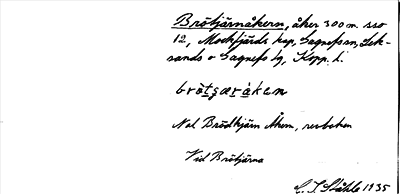 Brötjärnåkern, åker 300 m. sso
12, Mockfjärds kap, Gagnefs sn, Lek-
sands o Gagnefs tg, Kopp. l.
brö̀tʂæráken
Nal Brödkjärn Åkern, revboken
Vid Brötjärna
C. I. Ståhle 1935